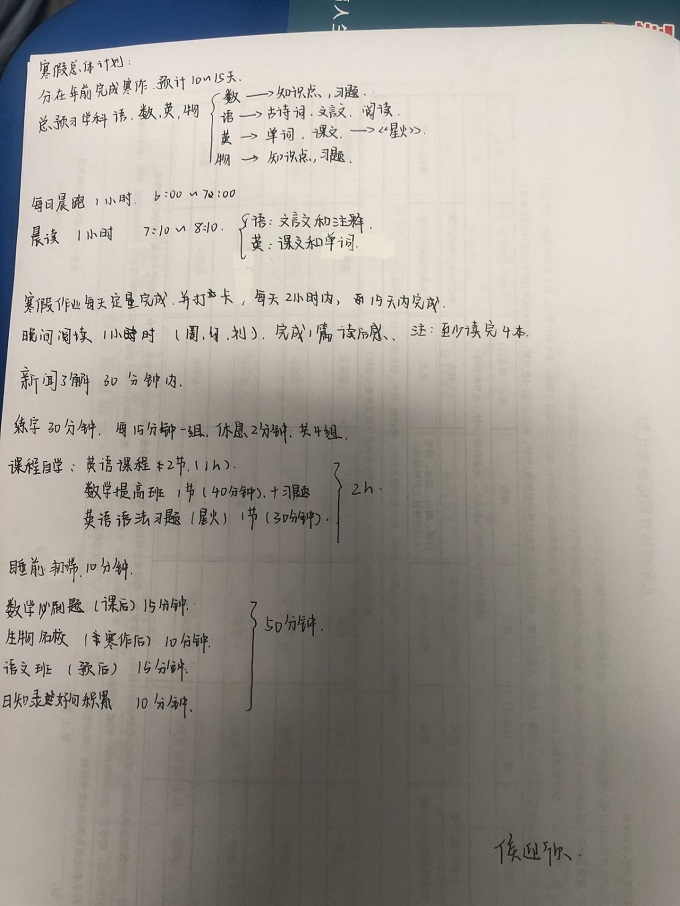 寒假总体计划:
分在年前完成寒作.预计10~15天.
总预习学科 语,数,英,物
数→知识点,习题.
语→古诗词.文言文.阅读.
英→单词,课文.→《星火》.
物→知识点,习题.
每日晨跑1小时. 6:00~7:00
晨读 1小时 7:10~8:10.
语:文言文和注释.
英:课文和单词.
寒假作业每天定量完成.并打卡,每天2小时内,15天内完成.
晚间阅读1小时 (周,日,刘).完成1篇读后感、注:至少读完4本.
新闻了解30分钟内.
练字30分钟. 每15分钟一组.休息2分钟.共4组.
课程自学:英语课程*2节.(1h).
数学提高班1节(40分钟).+习题
英语语法习题(星火)1节(30分钟).
2h.
睡前 10分钟.
数学必刷题(课后)15分钟.
生物名校(寒作后)10分钟.
语文班(预后)15分钟.
日知录好句积累 10分钟.
50分钟.